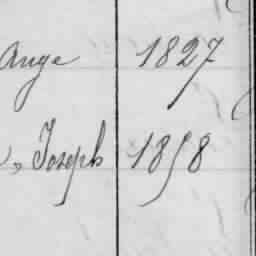 Ange 1827
, Joseph 1858